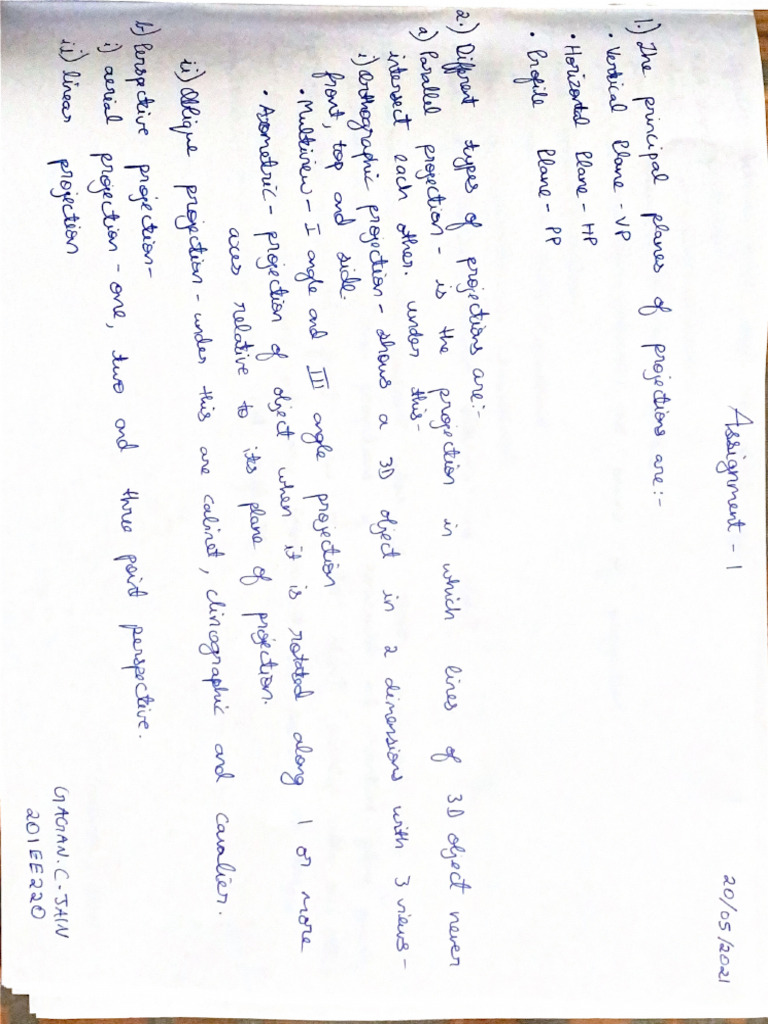 Assignment - 1
20/05/2021
1.) The principal planes of projections are:-
• Vertical Plane - VP
• Horizontal Plane - HP
• Profile Plane - PP
2.) Different types of projections are:-
a) Parallel projection - is the projection in which lines of 3D object never
intersect each other. under this-
i) Orthographic projection - shows a 3D object in 2 dimensions with 3 views -
front, top and side.
• Multiview - I angle and III angle projection
• Axometric - projection of object when it is rotated along 1 or more
axes relative to its plane of projection.
ii) Oblique projection - under this are cabinet, clinographic and cavalier.
b) Perspective projection-
i) aerial projection - one, two and three point perspective.
ii) linear projection
GAGAN. C. JAIN
201EE220